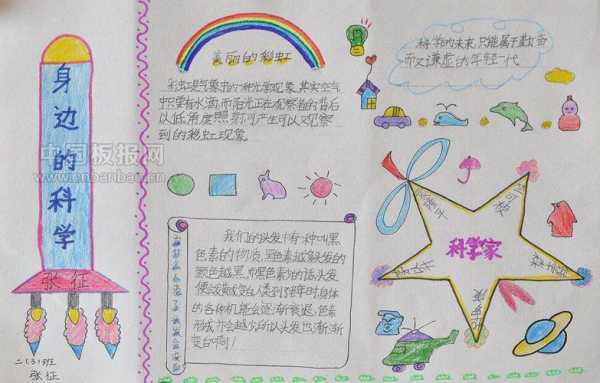 身边的科学
张征
二(3)班
张征
中国板报网
www.enbanbao.net
美丽的彩虹
彩虹是气象中的一种光学现象,其实空气
中只要有水滴,而阳光正在观察者的背后
以低角度照射,可产生可以观察
到的彩虹现象
科学的未来,只能属于勤奋
而又谦虚的年轻一代
我们的头发中有一种叫黑
色素的物质,黑色素越多头发的
颜色越黑
人类到了老年时身体
的各种机能会逐渐衰退,色素
形成亦会越少所以头发也渐渐
变白啊!
科学家